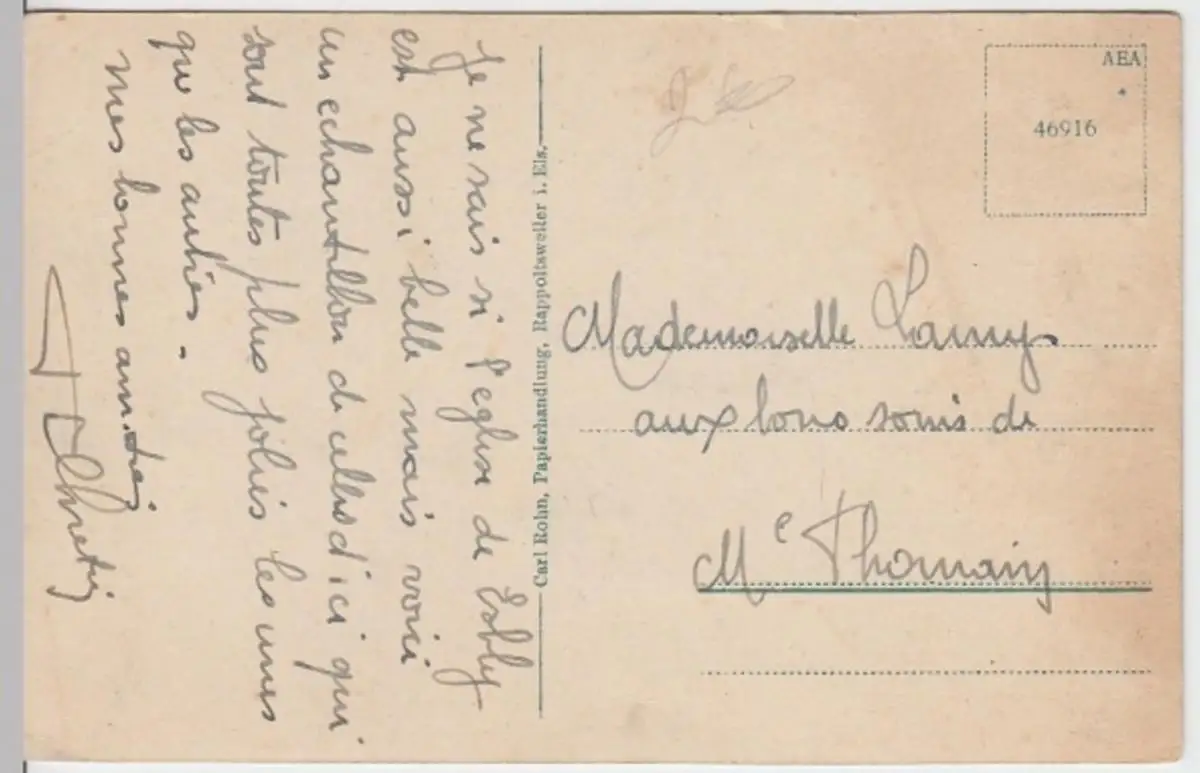 Je ne sais si l'eglise de Esbly
est aussi belle mais voici
un echantillon de celles d'ici qui
sont toutes plus jolies les unes
que les autres.
mes bonnes amitiés
Carl Rohn, Papierhandlung, Rappoltsweiler i. Els.
AEA
46916
Mademoiselle Lamy
aux bons soins de
Me Thomain